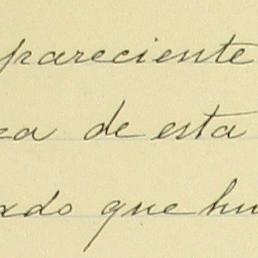 pareciente
za de esta
ado que hu